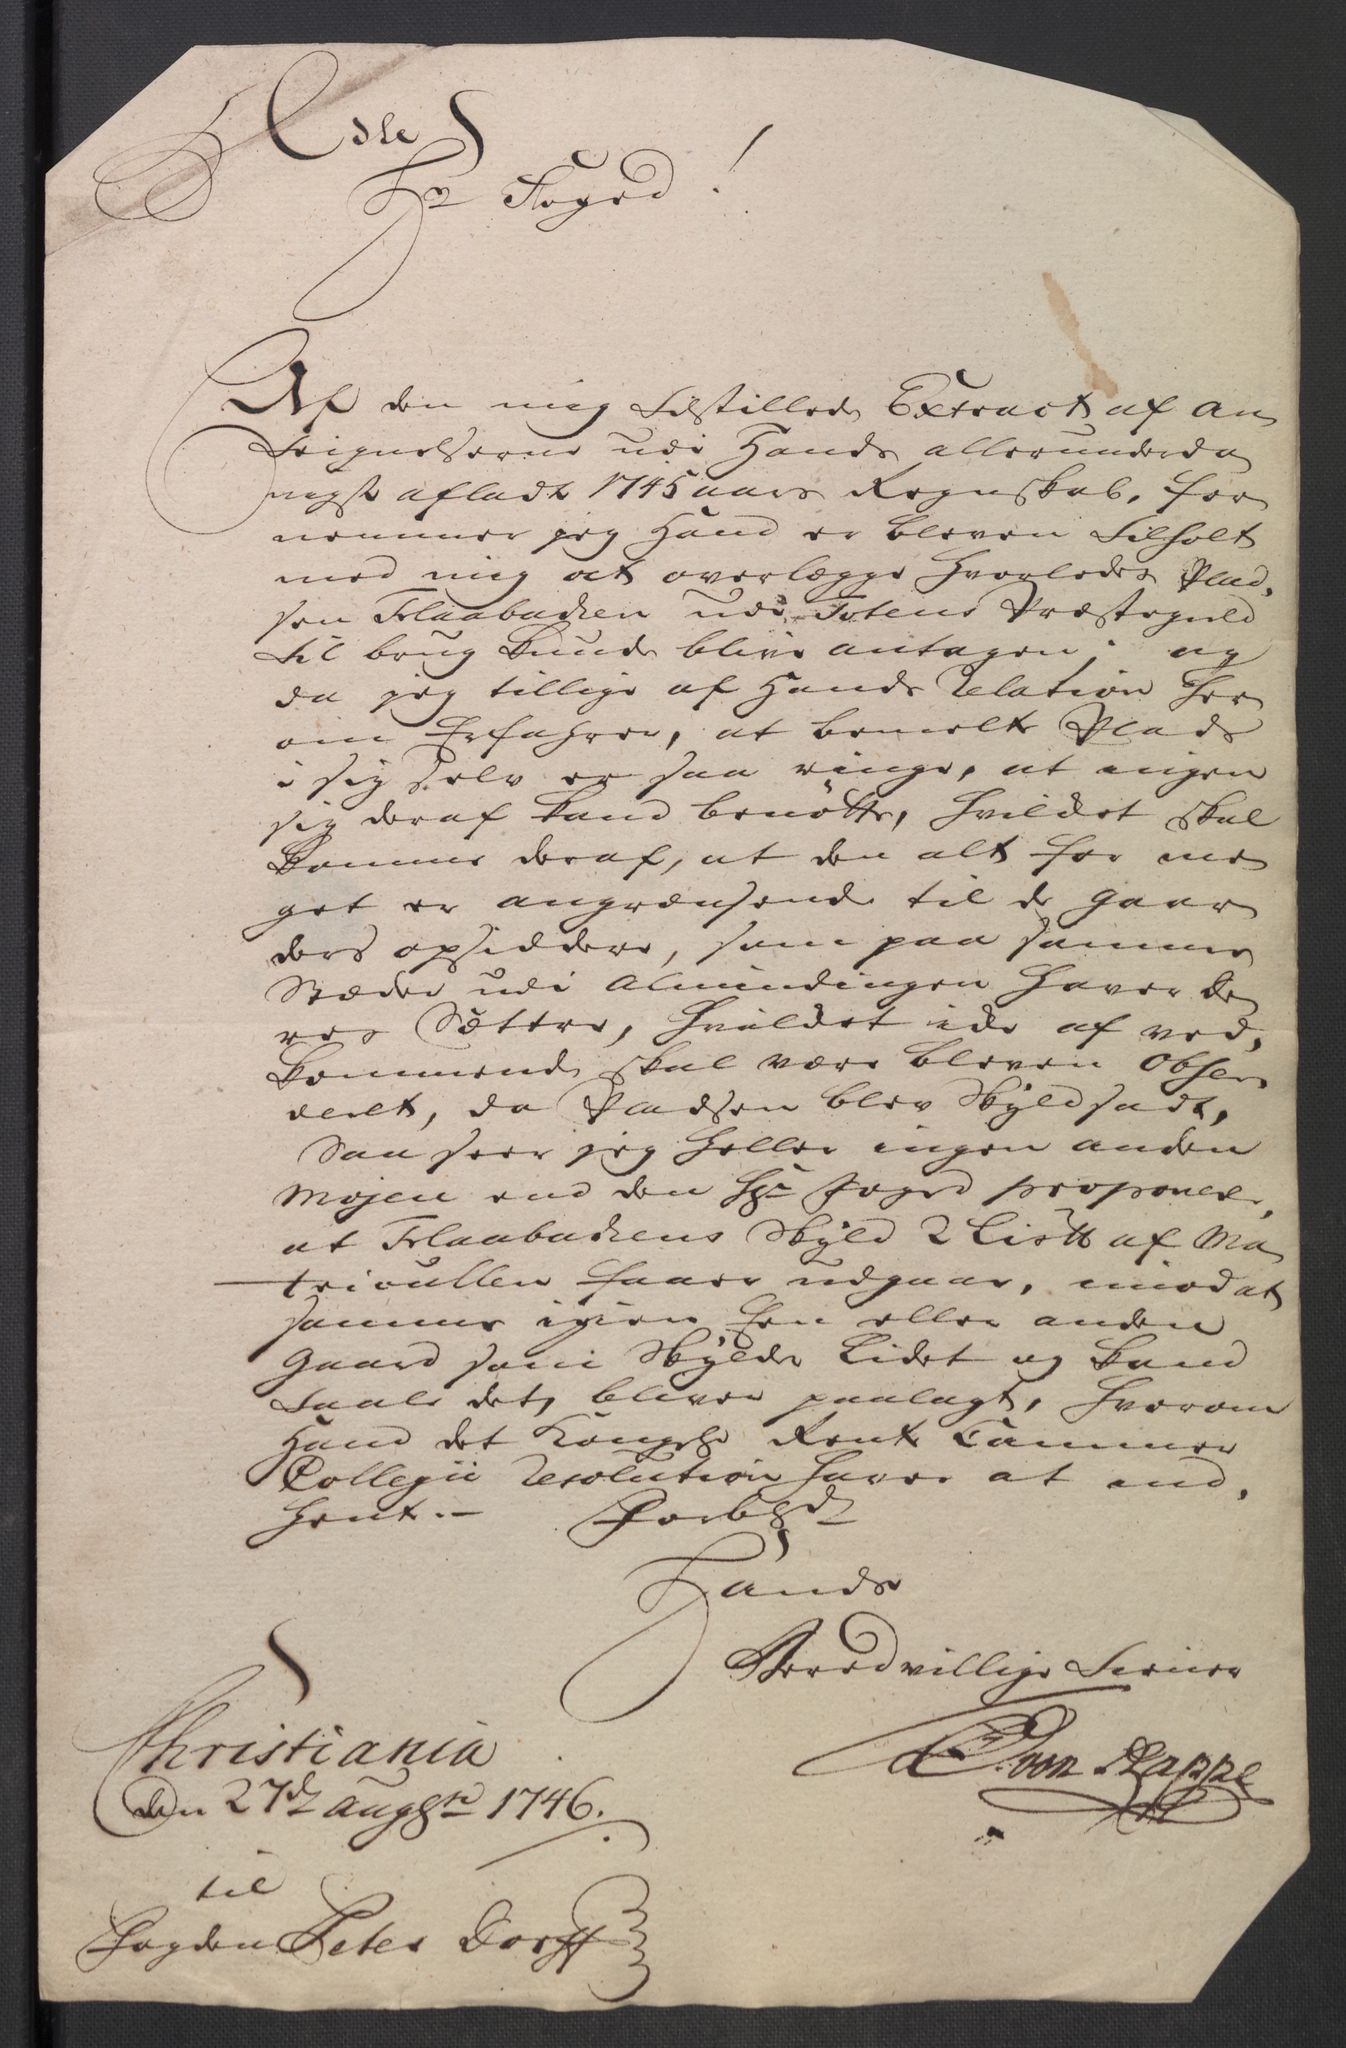 Edle
Hr Foged!
Af den mig tilstillede Extract af An
teignelserne udi Hands allerunderda
nigst afladte 1745 aars Regnskab, for
nemmer jeg Hand er bleven tilholt
med mig at overlægge hvorledes Plad,
sen Flaabachen udi Totens Præstegield
til brug kunde blive antagen; og
da jeg tillige af Hands Relation her
om Erfahrer, at bemelte Plads
i sig selv er saa ringe, at ingen
sig deraf kand benötte, hvilchet skal
komme deraf, at den alt for me
get er angrænsende til de gaar
ders opsiddere, som paa samme
Stæder udi Almindingen haver de
res Sættre, hvilchet icke af ved,
kommende skal være bleven obser
veret, da Pladsen blev Skyldsadt,
Saa seer jeg heller ingen anden
Mojen end den Hr Foged proponerer,
at Flaabachens Skyld 2 Lispd af Ma
triculen faaer udgaae, imod at
samme igien Een eller anden
Gaard som Skylder Lidet og kand
taale det, bliver paalagt, hvorom
Hand det Kongel. Rente Cammer
Collegii Resolution haver at ind,
hente.- Forbl.
Hands
Beredvillige tiener
von Rappe
Christiania
den 27de Augusti 1746.
til
Fogden Peter Dorff